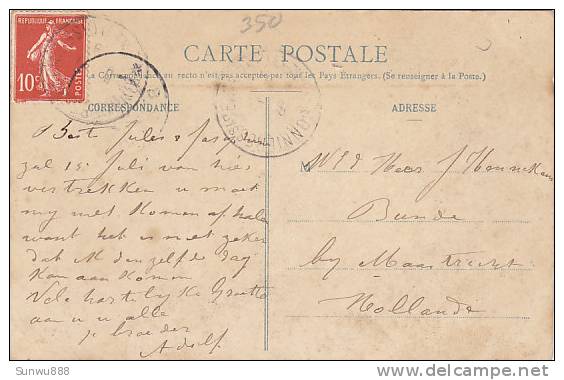 350
REPUBLIQUE FRANÇAISE
10c
POSTES
CARTE POSTALE
La Correspondance au recto n'est pas acceptée par tous les Pays Etrangers. (Se renseigner à la Poste.)
CORRESPONDANCE
ADRESSE
Beste Jules &
zal 15 Juli van hier
vertrekken u moet
my niet komen af halen
want het is niet zeker
dat ik den zelfde dag
kan aan komen
Vele hartelyke Groette
aan u alle
je broeder
Adolf
M
Bunde
by Maastricht
Hollande
Sunwu888
delcampe.net